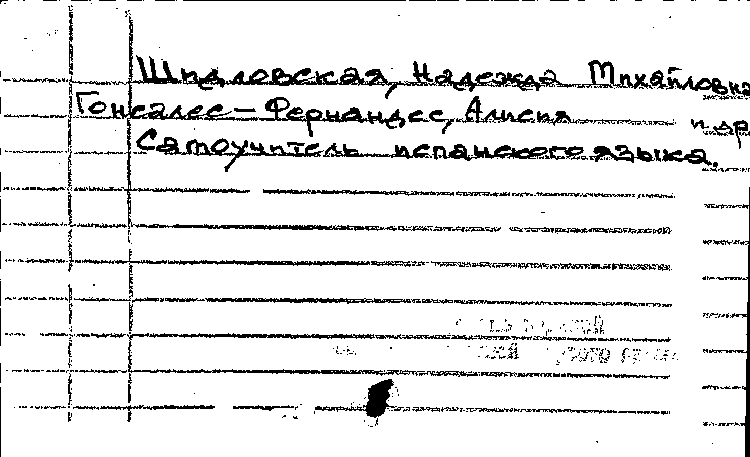 Шидловская, Надежда Михайловна
Гонсалес-Фернандес, Алисия и др
Самоучитель испанского языка.